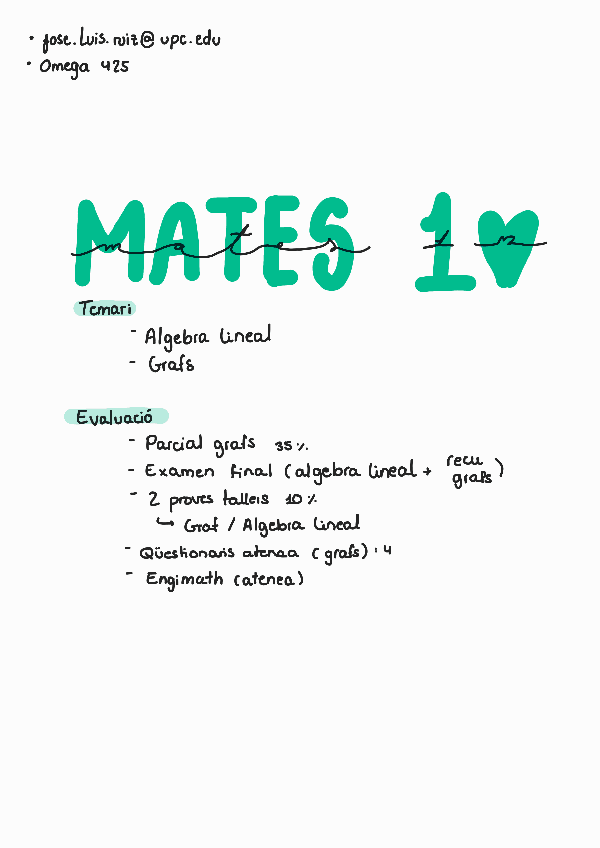 · jose.luis.ruiz@upc.edu
· Omega 425
MATES 1
mates 1 m
Temari
- Algebra lineal
- Grafs
Evaluació
- Parcial grafs 35%
- Examen final (algebra lineal + recu grafs)
- 2 proves tallers 10%
↳ Graf / Algebra lineal
- Qüestionaris atenea (grafs) · 4
- Engimath (atenea)